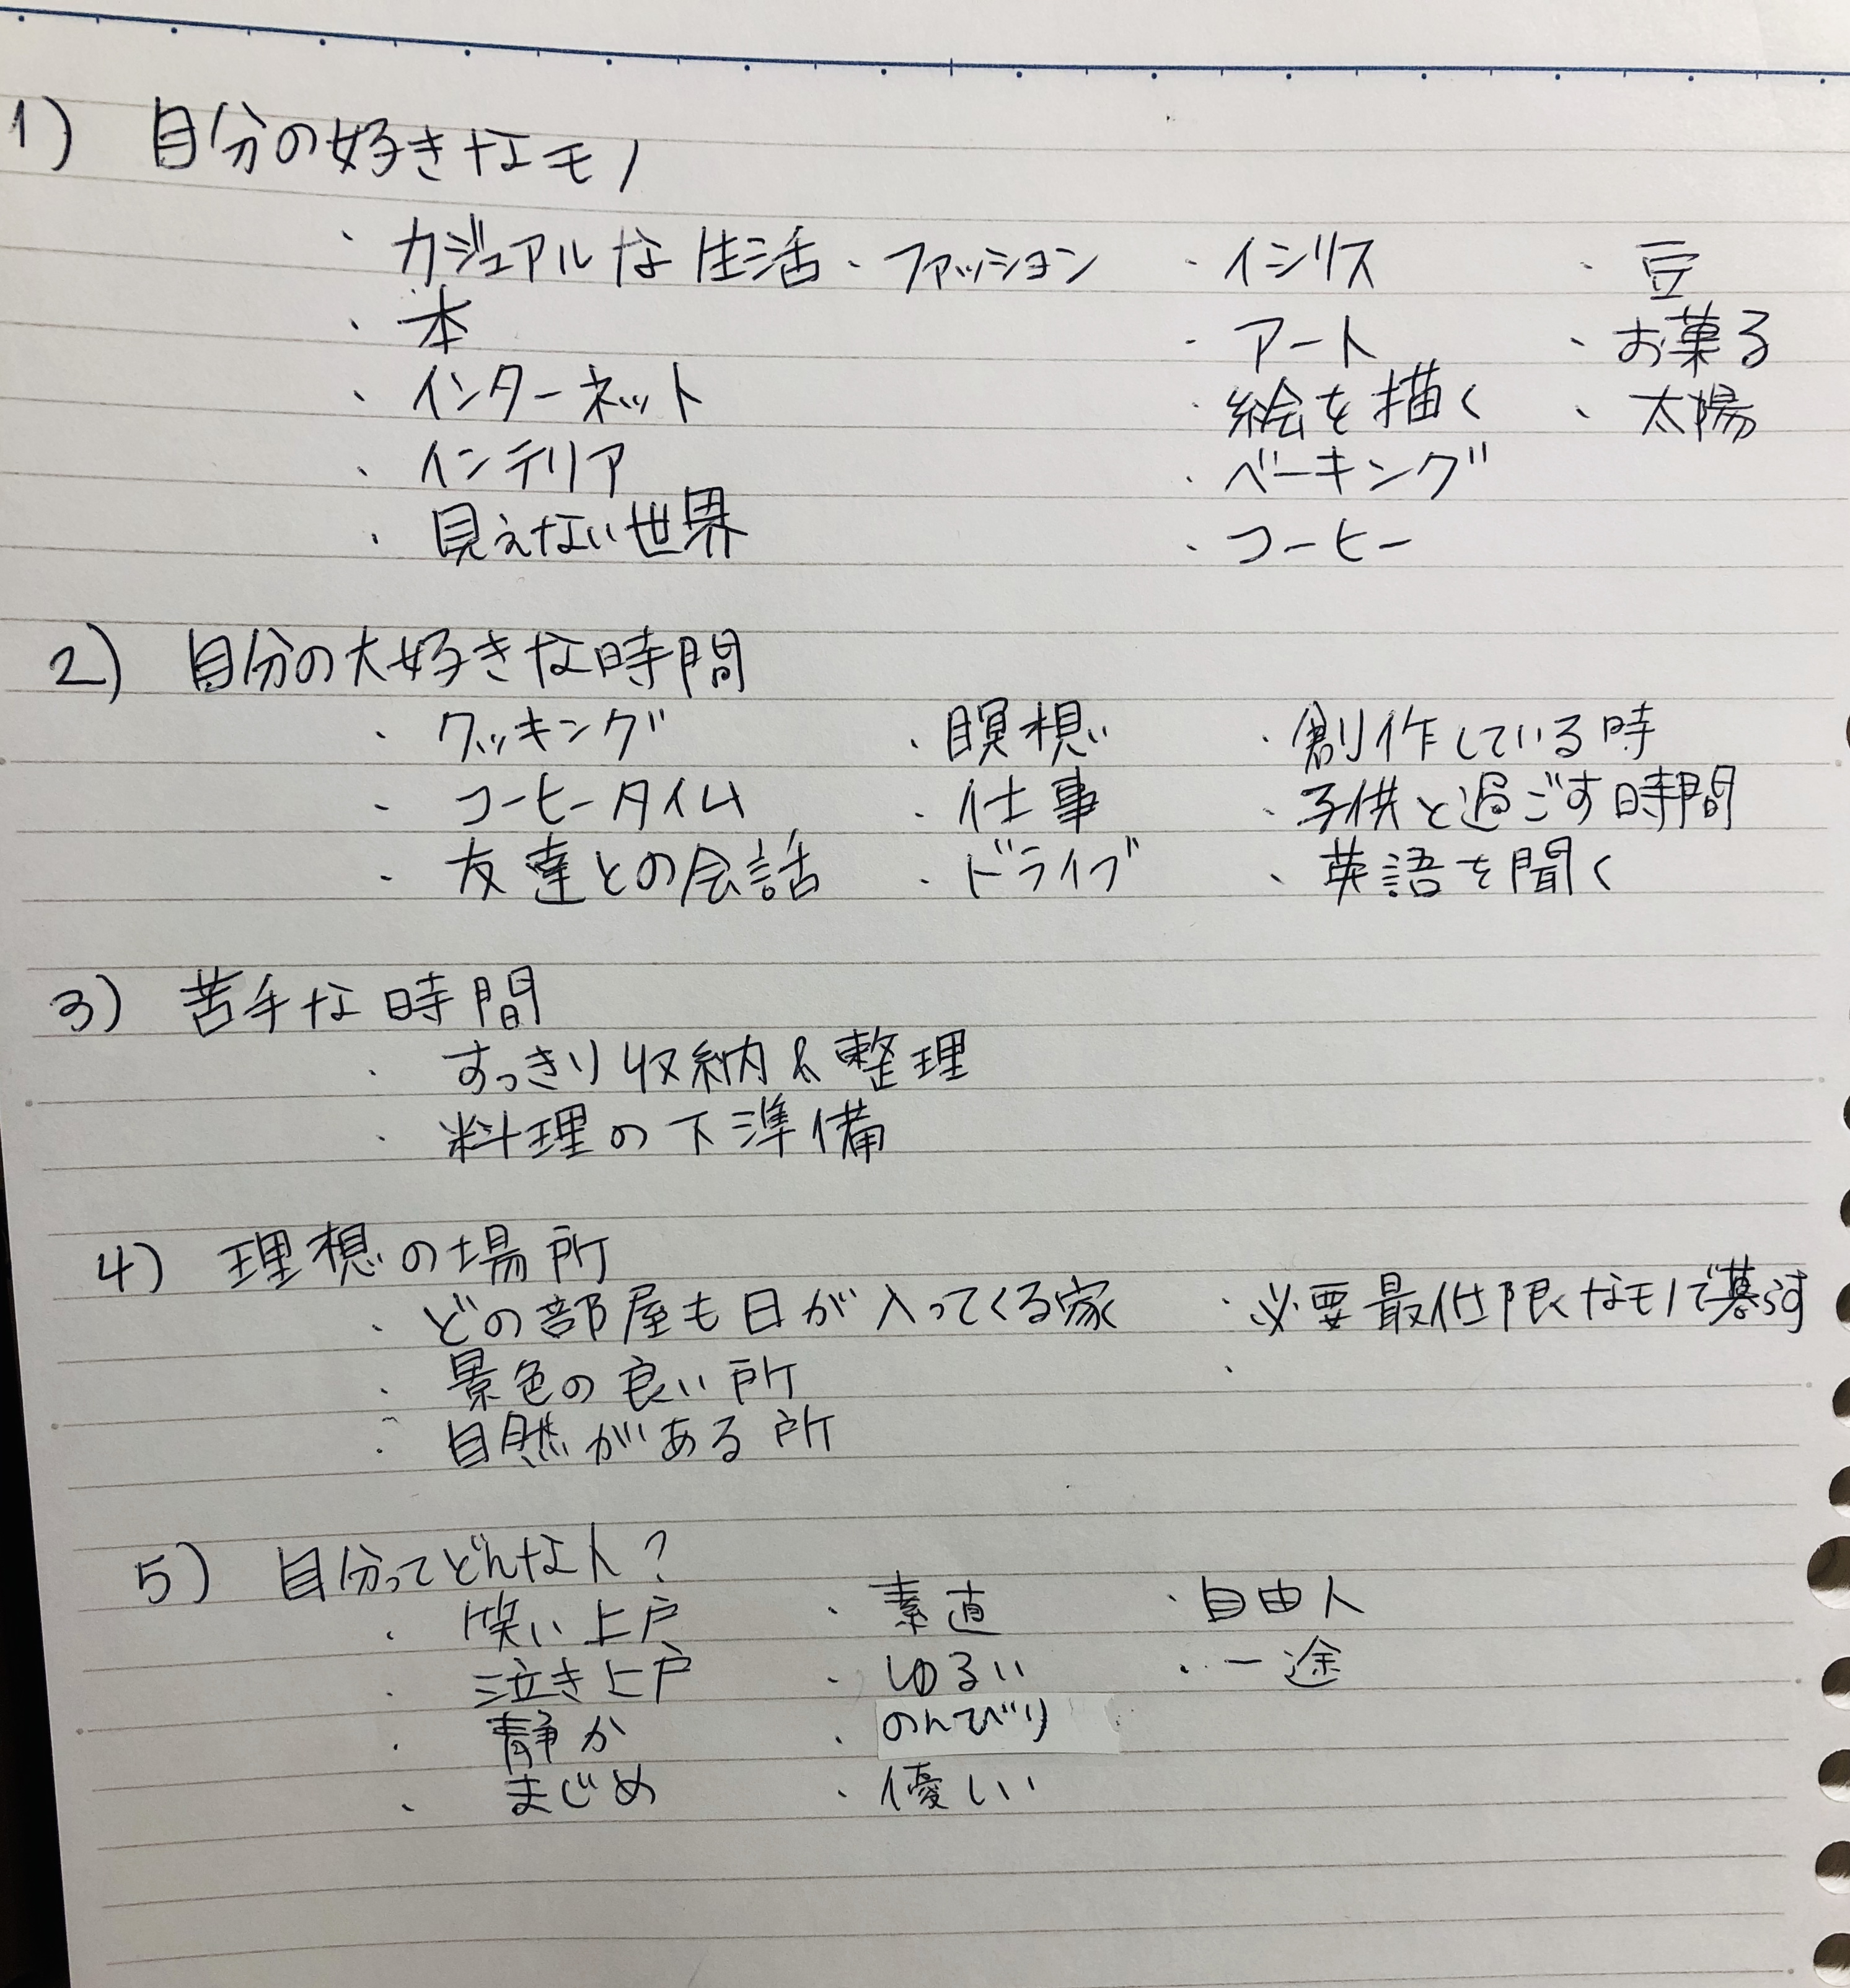 1) 自分の好きなモノ
・カジュアルな生活・ファッション ・イシリス ・豆
・本 ・アート ・お菓る
・インターネット ・絵を描く ・太陽
・インテリア ・ベーキング
・見えない世界 ・コーヒー
2) 自分の大好きな時間
・クッキング ・瞑想 ・創作している時
・コーヒータイム ・仕事 ・子供と過ごす時間
・友達との会話 ・ドライブ ・英語を聞く
3) 苦手な時間
・すっきり収納&整理
・料理の下準備
4) 理想の場所
・どの部屋も日が入ってくる家 ・必要最低限なモノで暮らす
・景色の良い所 ・
・自然がある所
5) 自分ってどんな人?
・笑い上戸 ・素直 ・自由人
・泣き上戸 ・ゆるい ・一途
・静か ・のんびり
・まじめ ・優しい